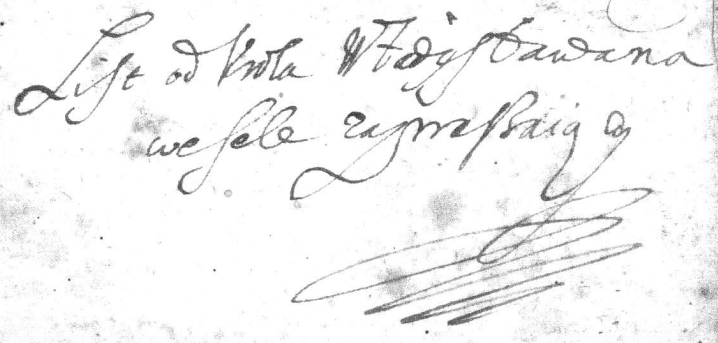 List od krola Władysława na
wesele zapraszaiący